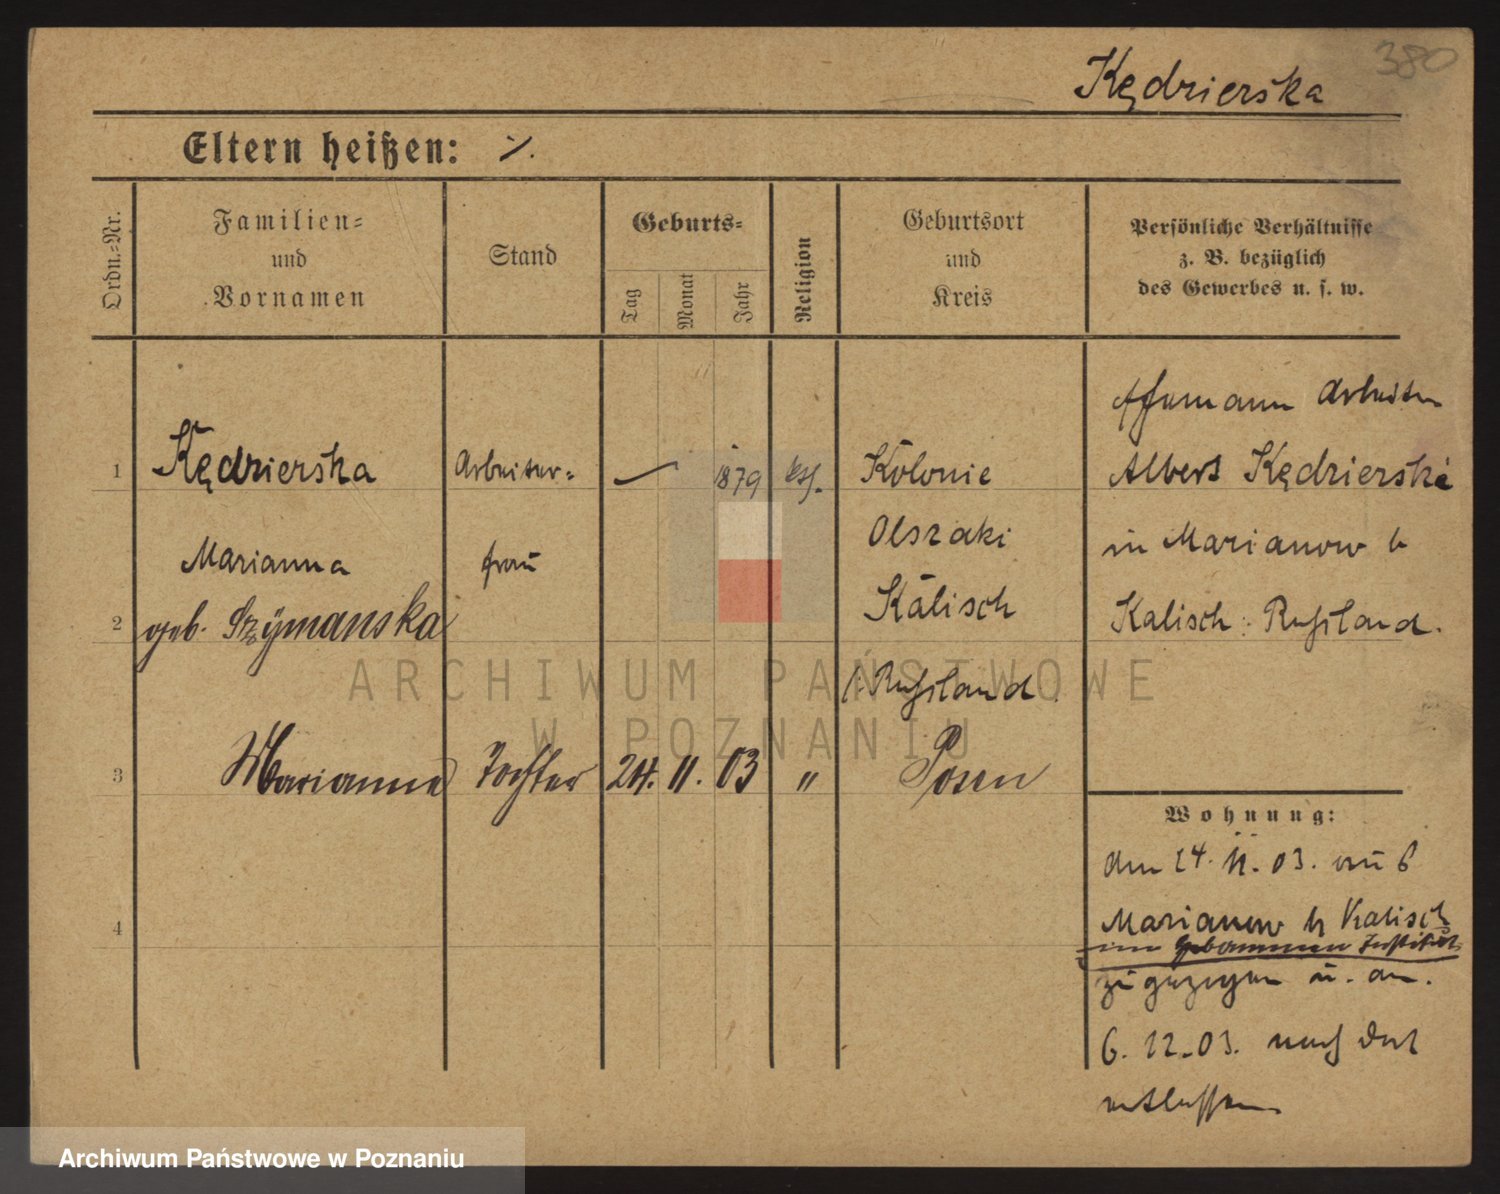 380
Kędzierska
Eltern heißen: ./.
Ordn.-Nr.
Familien-
und
Vornamen
Stand
Geburts-
Tag
Monat
Jahr
Religion
Geburtsort
und
Kreis
Persönliche Verhältnisse
z. B. bezüglich
des Gewerbes u. s. w.
Ehemann Arbeiter
1 Kędzierska Arbeiter- 1879 kath. Kolonie Albert Kędzierski
Marianna frau Olszaki in Marianow b
2 geb. Szymanska Kalisch Kalisch Rußland.
Rußland
3 Marianna Tochter 24. 11. 03 " Posen
Wohnung:
am 24. 11. 03. aus
4 Marianow b Kalisch
im Hebammen Institut
zugezogen u. am
6. 12. 03. nach dort
entlassen
ARCHIWUM PAŃSTWOWE
W POZNANIU
Archiwum Państwowe w Poznaniu